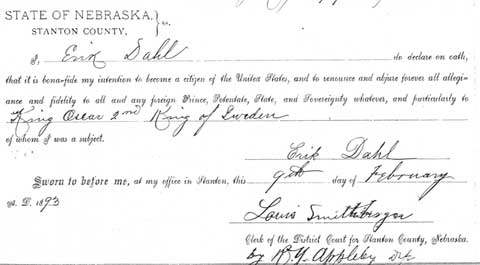 STATE OF NEBRASKA, } ss.
STANTON COUNTY,
I, Erik Dahl do declare on oath,
that it is bona-fide my intention to become a citizen of the United States, and to renounce and abjure forever all allegi-
ance and fidelity to all and any foreign Prince, Potentate, State, and Sovereignty whatever, and particularly to
King Oscar 2nd King of Sweden
of whom I was a subject.
Erik Dahl
Sworn to before me, at my office in Stanton, this 9th day of February
A. D. 1893
Louis Smithberger
Clerk of the District Court for Stanton County, Nebraska.
by Appleby